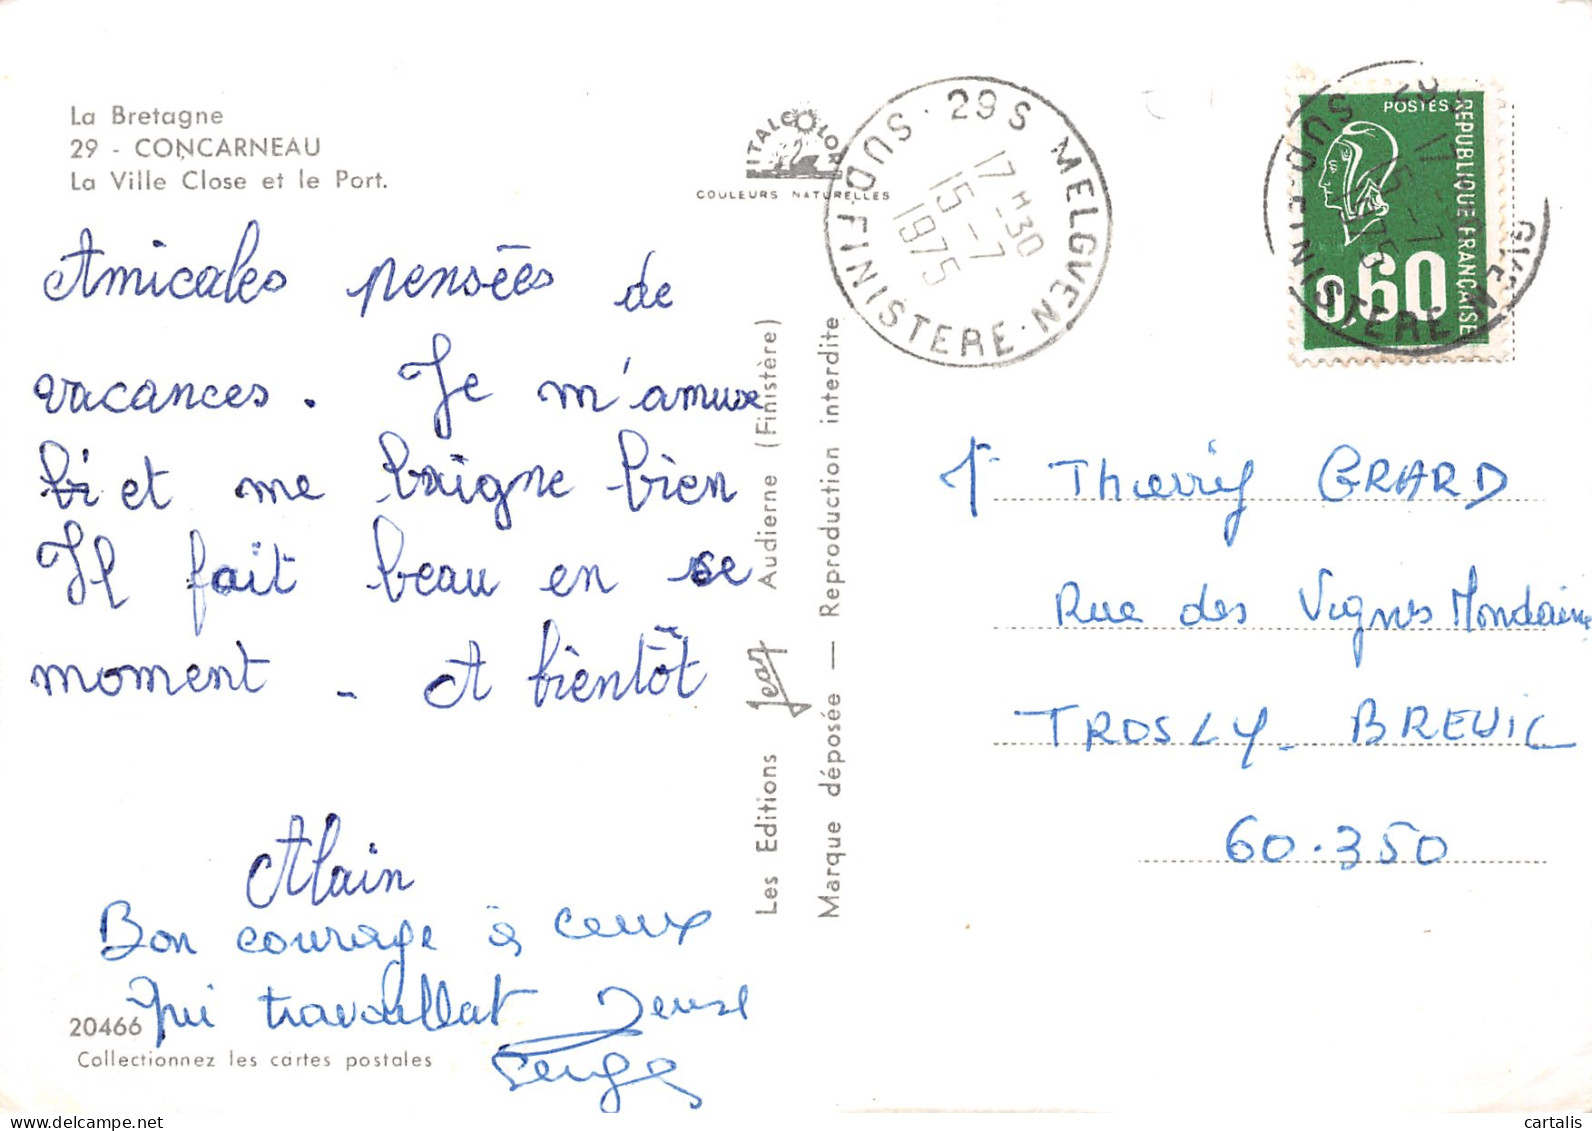 La Bretagne
29 - CONCARNEAU
La Ville Close et le Port.
ITALCOLOR
COULEURS NATURELLES
29 S MELGVEN
17 H 30
15 - 7
1975
SUD-FINISTERE
POSTES
REPUBLIQUE FRANÇAISE
0,60
Amicales pensées de
vacances. Je m'amuse
bi et me baigne bien
Il fait beau en ce
moment - A bientôt
Alain
Bon courage à ceux
qui travaillent
Serge
20466
Collectionnez les cartes postales
Les Editions Jean Audierne (Finistère)
Marque déposée — Reproduction interdite
Thierry GRARD
Rue des Vignes Mondaine
TROSLY-BREUIL
60.350
delcampe.net
cartalis